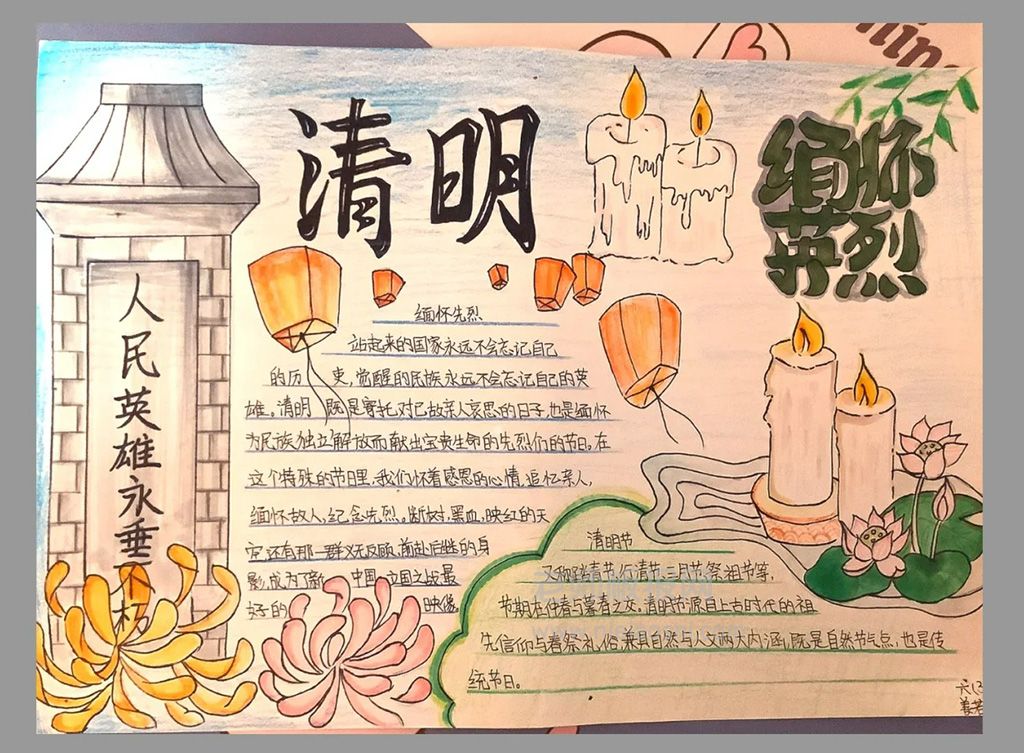 清明
缅怀
英烈
人民英雄永垂不朽
缅怀先烈
站起来的国家永远不会忘记自己
的历史,觉醒的民族永远不会忘记自己的英
雄。清明 既是寄托对已故亲人哀思的日子,也是缅怀
为民族独立解放而献出宝贵生命的先烈们的节日。在
这个特殊的节日里,我们怀着感恩的心情,追忆亲人,
缅怀故人,纪念先烈。断树,黑血,映红的天
空还有那一群义无反顾,前赴后继的身
影,成为了新 中国 立国之战最
好的 映像
清明节
又称踏青节、行清节、三月节、祭祖节等,
节期在仲春与暮春之交。清明节源自上古时代的祖
先信仰与春祭礼俗,兼具自然与人文两大内涵,既是自然节气点,也是传
统节日。